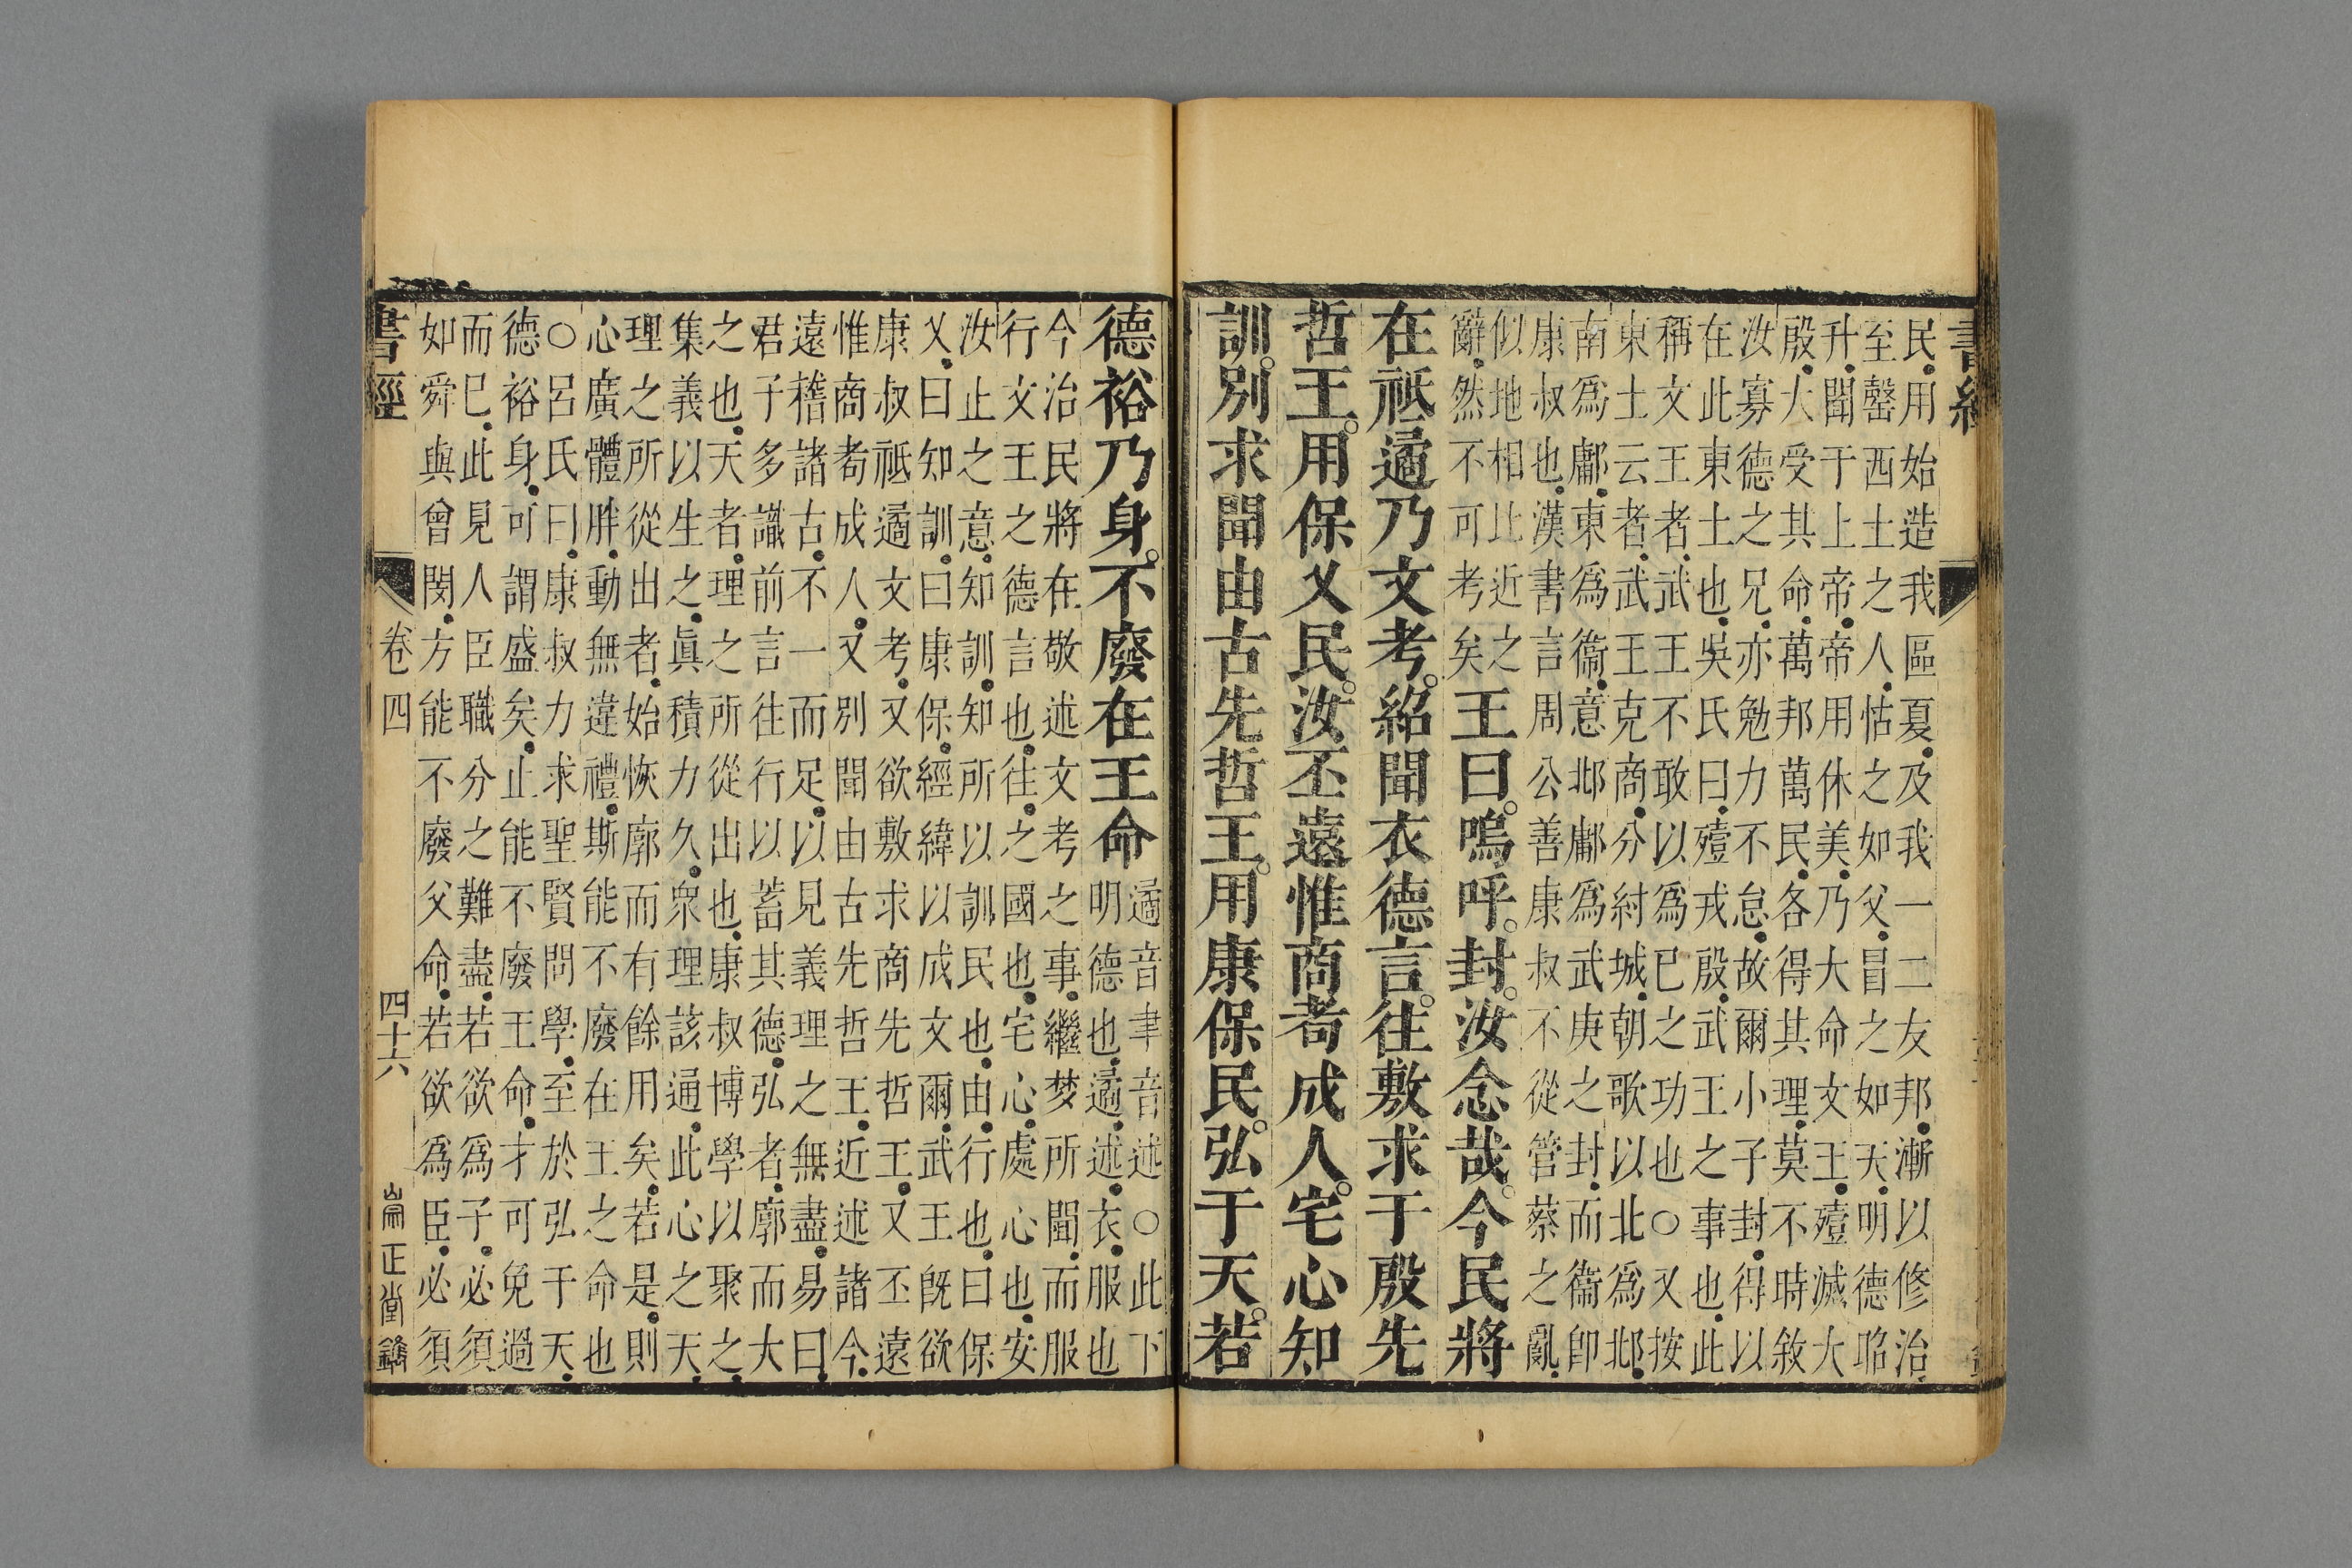 書經
民。用始造我區夏。及我一二友邦。漸以修治。
至罄西土之人。怙之如父。冒之如天。明德昭
升。聞于上帝。帝用休美。乃大命文王。殪滅大
殷。大受其命。萬邦萬民。各得其理。莫不時敘
汝寡德之兄。亦勉力不怠。故爾小子封。得以
在此東土也。吳氏曰。殪戎殷。武王之事也。此
稱文王者。武王不敢以爲巳之功也○又按
東土云者。武王克商。分紂城。朝歌以北爲邶。
南爲鄘。東爲衞。意邶鄘爲武庚之封。而衞卽
康叔也。漢書言周公善康叔不從管蔡之亂。
似地相比近之
辭。然不可考矣
王曰。嗚呼。封。汝念哉。今民將
在祗遹乃文考。紹聞衣德言。往敷求于殷先
哲王。用保乂民。汝丕遠惟商耇成人。宅心知
訓。別求聞由古先哲王。用康保民。弘于天。若
德裕乃身。不廢在王命
遹音聿音述○此下
明德也。遹。述。衣。服也
今治民將在敬述文考之事。繼梦所聞。而服
行文王之德言也。往。之國也。宅心。處心也。安
汝止之意。知訓。知所以訓民也。由。行也。曰保
乂。曰知訓。曰康保。經緯以成文爾。武王既欲
康叔祗遹文考。又欲敷求商先哲王。又丕遠
惟商耇成人。又別聞由古先哲王。近述諸今。
遠稽諸古。不一而足。以見義理之無盡。易曰。
君子多識前言往行以蓄其德。弘者。廓而大
之也。天者。理之所從出也。康叔博學以聚之。
集義以生之。眞積力久。衆理該通。此心之天。
理之所從出者。始恢廓而有餘用矣。若是。則
心廣體胖。動無違禮。斯能不廢在王之命也
○呂氏曰。康叔力求聖賢問學。至於弘于天。
德裕身。可謂盛矣。止能不廢王命。才可免過
而巳。此見人臣職分之難盡。若欲爲子。必須
如舜與曾閔。方能不廢父命。若欲爲臣。必須
書經
卷四
四十六
崇正堂鐫